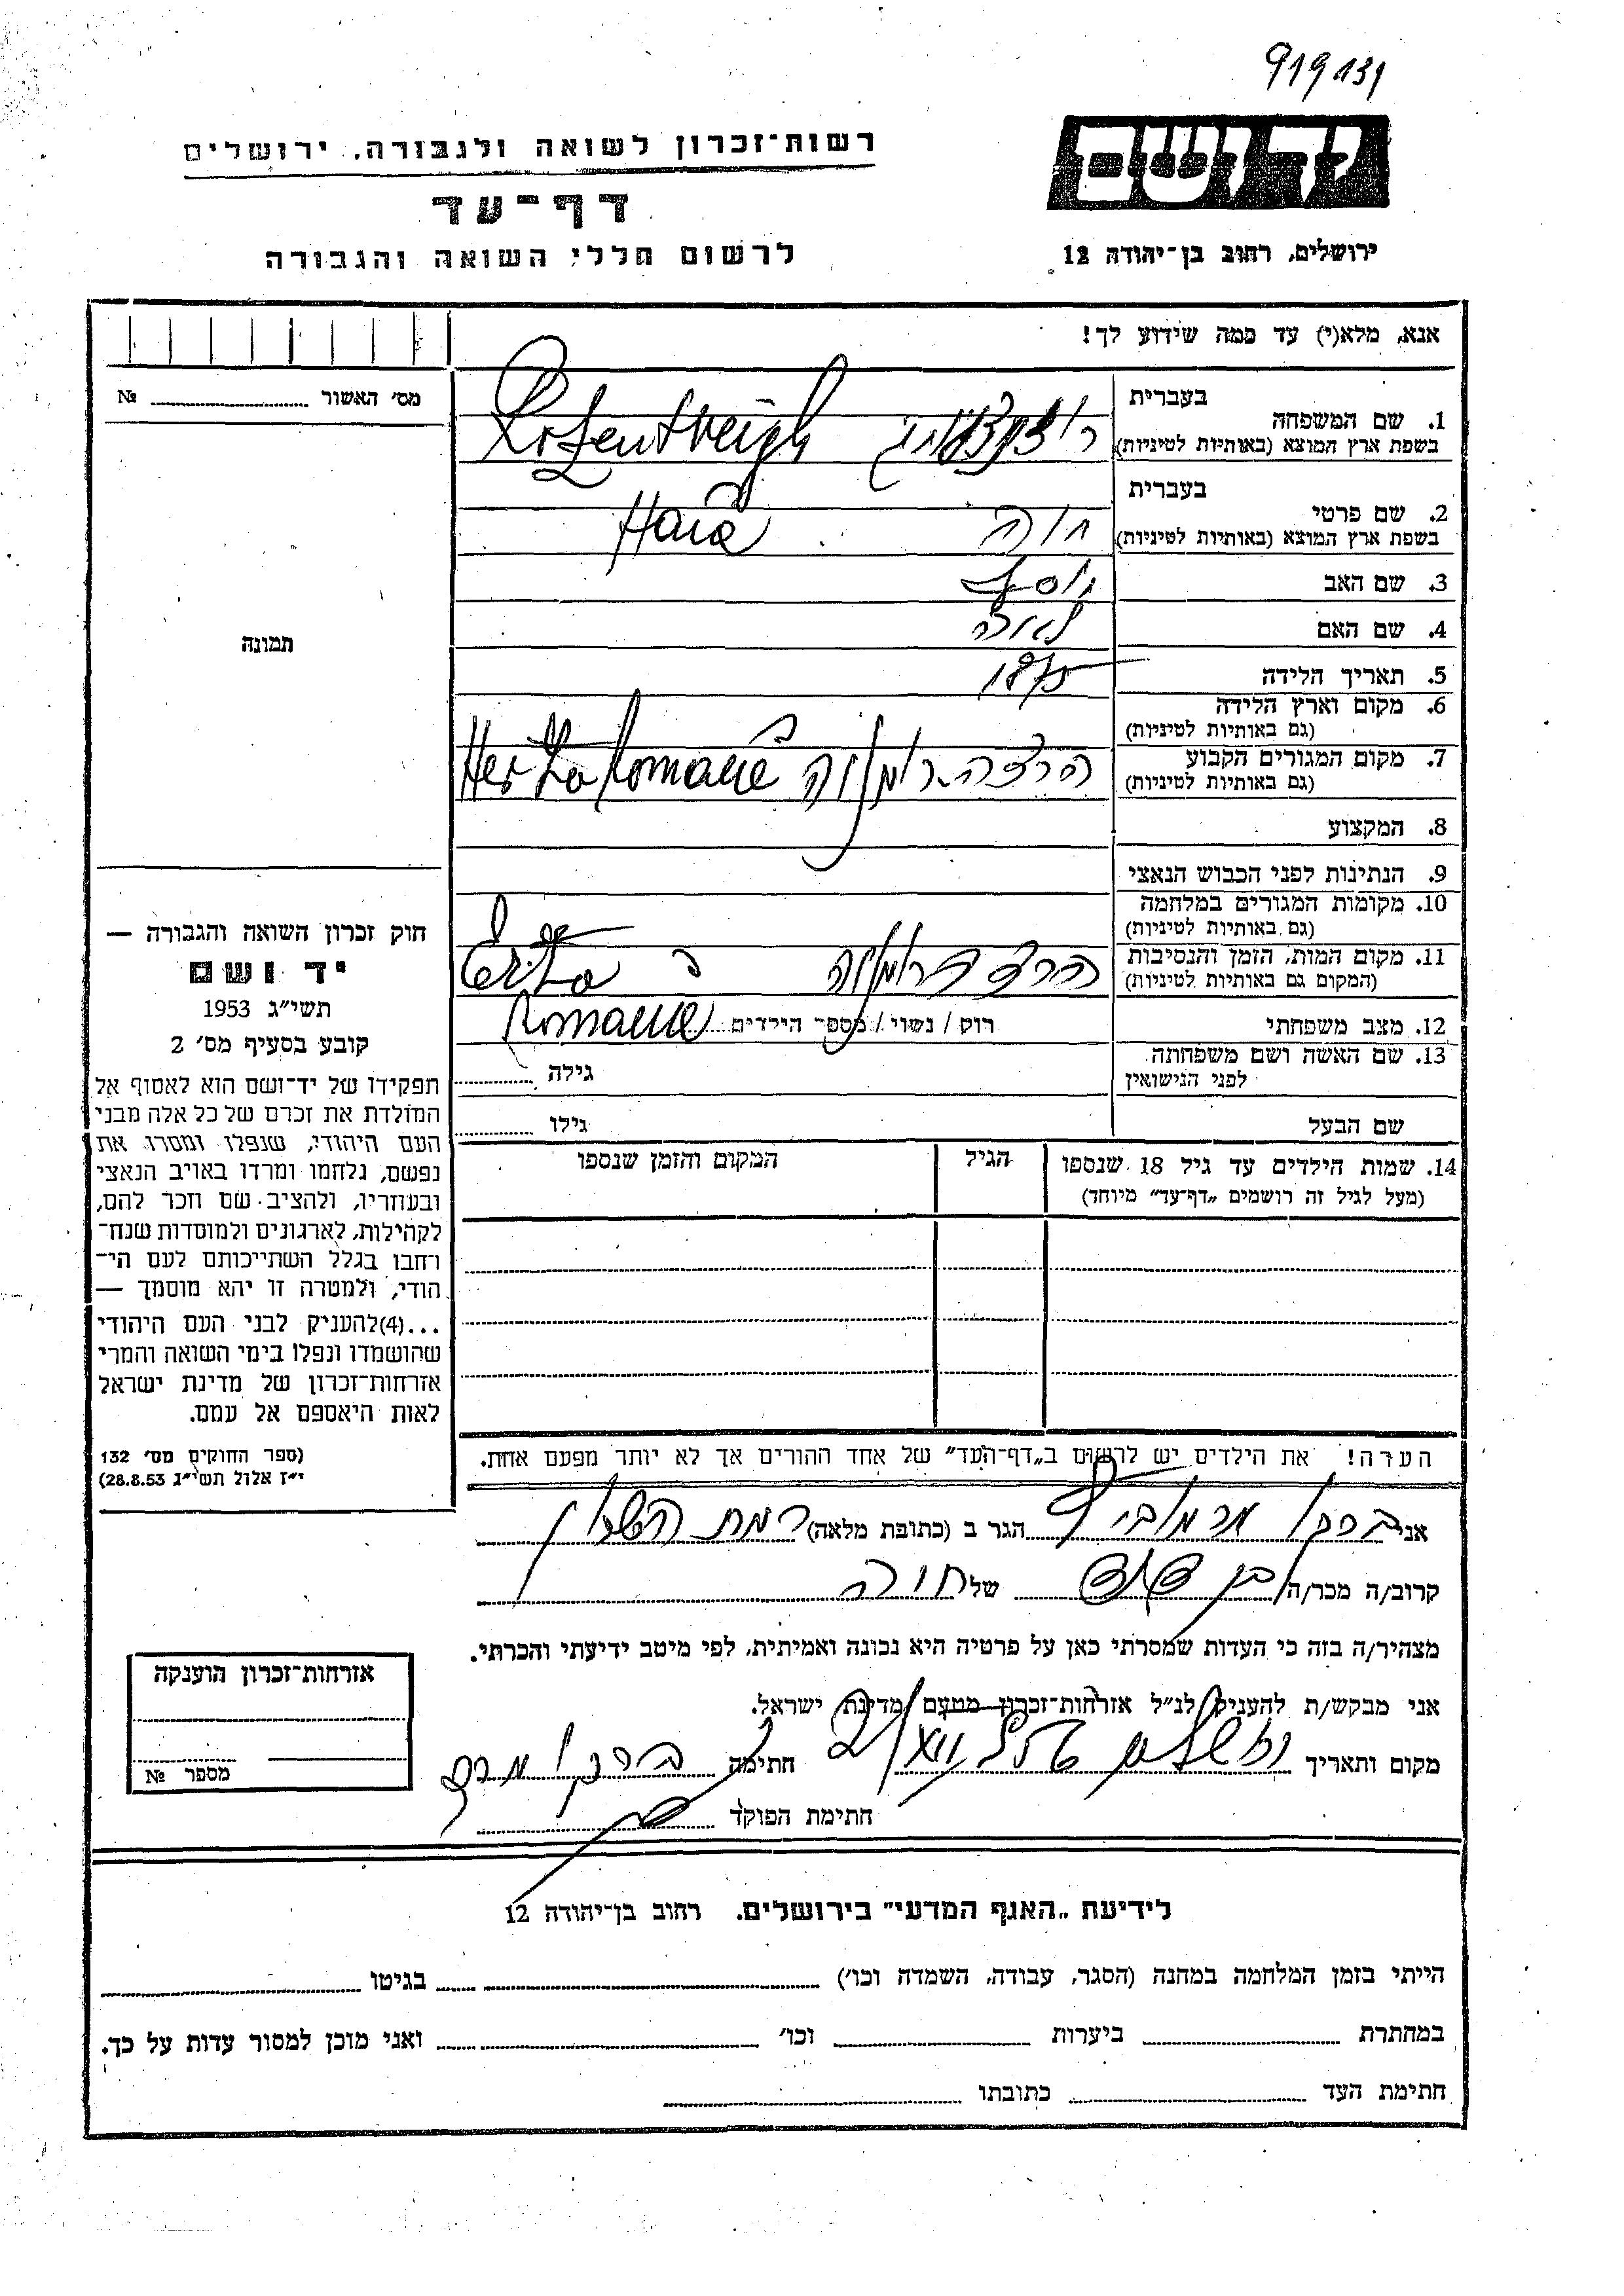 919131
יד ושם
רשות־זכרון לשואה ולגבורה, ירושלים
דף־עד
לרשום חללי השואה והגבורה
ירושלים, רחוב בן־יהודה 12
אנא, מלא(י) עד כמה שידוע לך!
מס' האשור № 
1. שם המשפחה בעברית
בשפת ארץ המוצא (באותיות לטיניות)
2. שם פרטי בעברית חוה
בשפת ארץ המוצא (באותיות לטיניות) Haia
3. שם האב יוסף
4. שם האם לאה
5. תאריך הלידה 1875
6. מקום וארץ הלידה
(גם באותיות לטיניות)
7. מקום המגורים הקבוע הרצה רומניה Hertza Romanie
(גם באותיות לטיניות)
8. המקצוע
9. הנתינות לפני הכבוש הנאצי
10. מקומות המגורים במלחמה
(גם באותיות לטיניות)
11. מקום המות, הזמן והנסיבות הרצה רומניה
(המקום גם באותיות לטיניות)
12. מצב משפחתי רוק / נשוי / מספר הילדים Romanie
13. שם האשה ושם משפחתה
לפני הנישואין גילה
שם הבעל גילו
14. שמות הילדים עד גיל 18 שנספו
(מעל לגיל זה רושמים „דף־עד” מיוחד)
הגיל
המקום והזמן שנספו
תמונה
חוק זכרון השואה והגבורה —
יד ושם
תשי״ג 1953
קובע בסעיף מס' 2
תפקידו של יד־ושם הוא לאסוף אל
המולדת את זכרם של כל אלה מבני
העם היהודי, שנפלו ומסרו את
נפשם, נלחמו ומרדו באויב הנאצי
ובעוזריו, ולהציב שם וזכר להם,
לקהילות, לארגונים ולמוסדות שנח־
רחבו בגלל השתייכותם לעם הי־
הודי, ולמטרה זו יהא מוסמך —
...(4)להעניק לבני העם היהודי
שהושמדו ונפלו בימי השואה והמרי
אזרחות־זכרון של מדינת ישראל
לאות היאספם אל עמם.
(ספר החוקים מס' 132
י״ז אלול תשי״ג 28.8.53)
הערה! את הילדים יש לרשום ב„דף־העד” של אחד ההורים אך לא יותר מפעם אחת.
אני ברקו הגר ב (כתובת מלאה) רמת השרון
קרוב/ה מכר/ה בן דוד של חוה
מצהיר/ה בזה כי העדות שמסרתי כאן על פרטיה היא נכונה ואמיתית, לפי מיטב ידיעתי והכרתי.
אני מבקש/ת להעניק לנ״ל אזרחות־זכרון מטעם מדינת ישראל.
מקום ותאריך חתימה
חתימת הפוקד
אזרחות־זכרון הוענקה
מספר №
לידיעת „האגף המדעי” בירושלים. רחוב בן־יהודה 12
הייתי בזמן המלחמה במחנה (הסגר, עבודה, השמדה וכו') בגיטו
במחתרת ביערות וכו' ואני מוכן למסור עדות על כך.
חתימת העד כתובתו